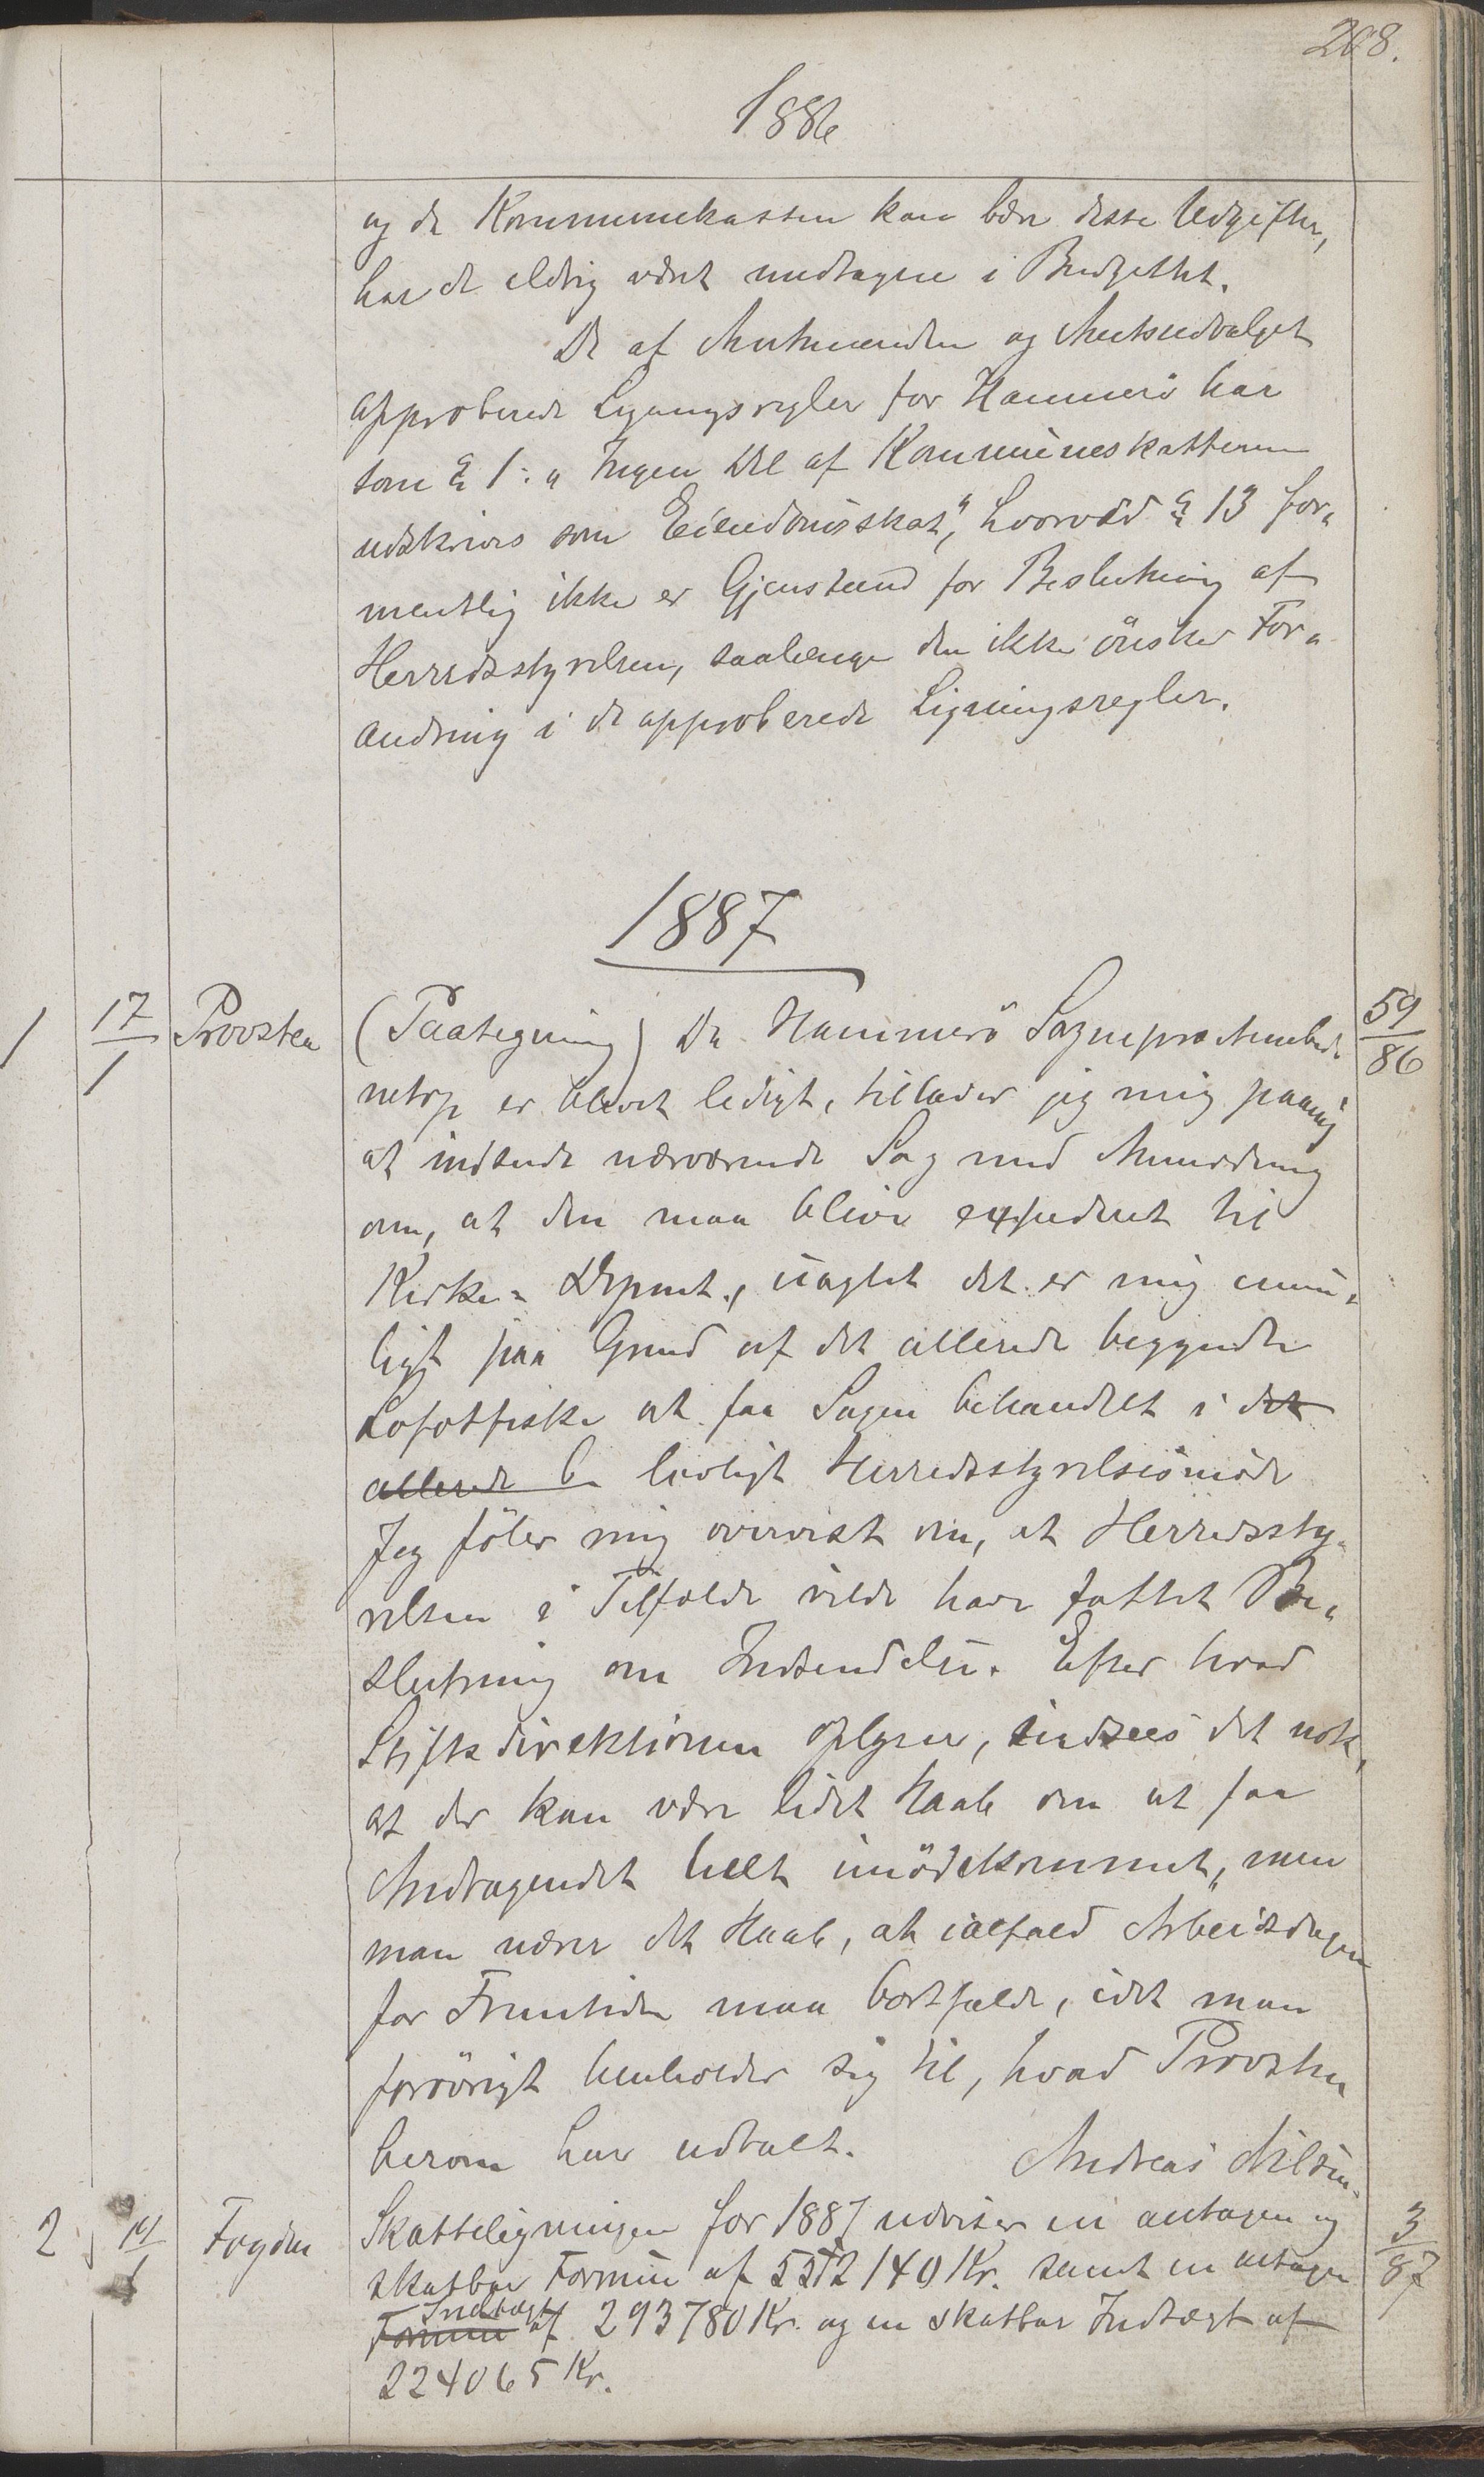 268.
1886
og da Kommunekassen kan bære disse Udgifter,
har de aldrig været medtagne i Budgettet.
De af Amtmanden og Amtsudvalget
approberede Ligningsregler for Hammerö har
som § 1: "Ingen Del af Kommuneskatterne
udskrives som Eiendomsskat", hvorved § 13 for-
mentlig ikke er Gjenstand for Beslutning af
Herredsstyrelsen, saalænge den ikke önsker For-
andring i de approberede Ligningsregler.
1887
1 17/1 Provsten (Paategning) Da Hammerö Sognepræstembede 59/86
netop er blevet ledigt, tillader jeg mig paany
at indsende nærværende Sag med Anmodning
om, at den maa blive expederet til
Kirke-Depmt., uagtet det er mig umu-
ligt paa Grund af det allerede begyndte
Lofotfiske at faa Sagen behandlet i det
allerede be lovligt Herredsstyrelsesmöde
Jeg föler mig overvist om, at Herredssty-
relsen i Tilfælde vilde have fattet Be-
slutning om Indsendelse. Efter hvad
Stiftsdirektionen oplyser, indsees det nok,
at der kan være lidet Haab om at faa
Andragendet helt imödekommet, men
man nærer det Haab, at ialfald Arbeidsdagen
for Fremtiden maa bortfalde, idet man
forövrigt henholder sig til, hvad Provsten
herom har udtalt.
Andreas Nilsen.
2 19/1 Fogden Skatteligningen for 1887 udviser en antagen og 3/87
skatbar Formue af 552140 Kr. samt en antagen
Indtægt
Formue af 293780 Kr. og en skatbar Indtægt af
224065 Kr.